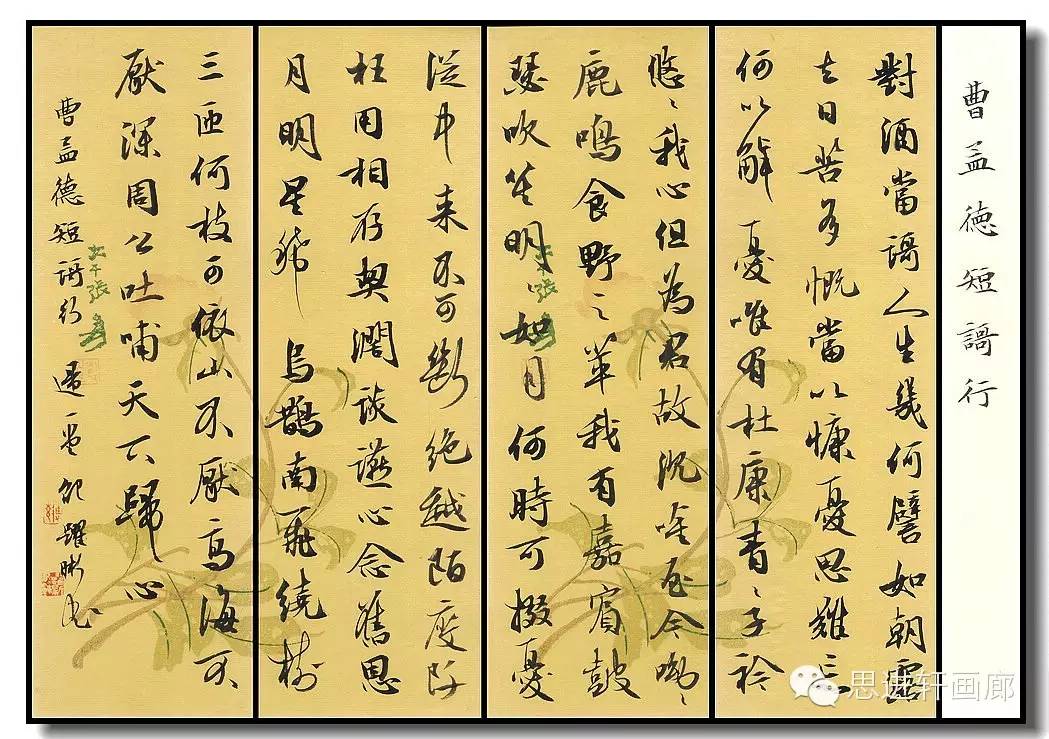 曹孟德短謌行
對酒當謌人生幾何譬如朝露
去日苦多慨當以慷憂思難忘
何以解憂唯有杜康青〻子衿
悠〻我心但為君故沉唫至今呦〻
鹿鳴食野之苹我有嘉賓鼓
瑟吹笙明〻如月何時可掇憂
從中来不可斷絕越陌度阡
枉用相存契濶談讌心念舊恩
月明星稀烏鵲南飛繞樹
三匝何枝可依山不厭高海不
厭深周公吐哺天下歸心
曹孟德短謌行 躍彬書
大千張爰
思进轩画廊